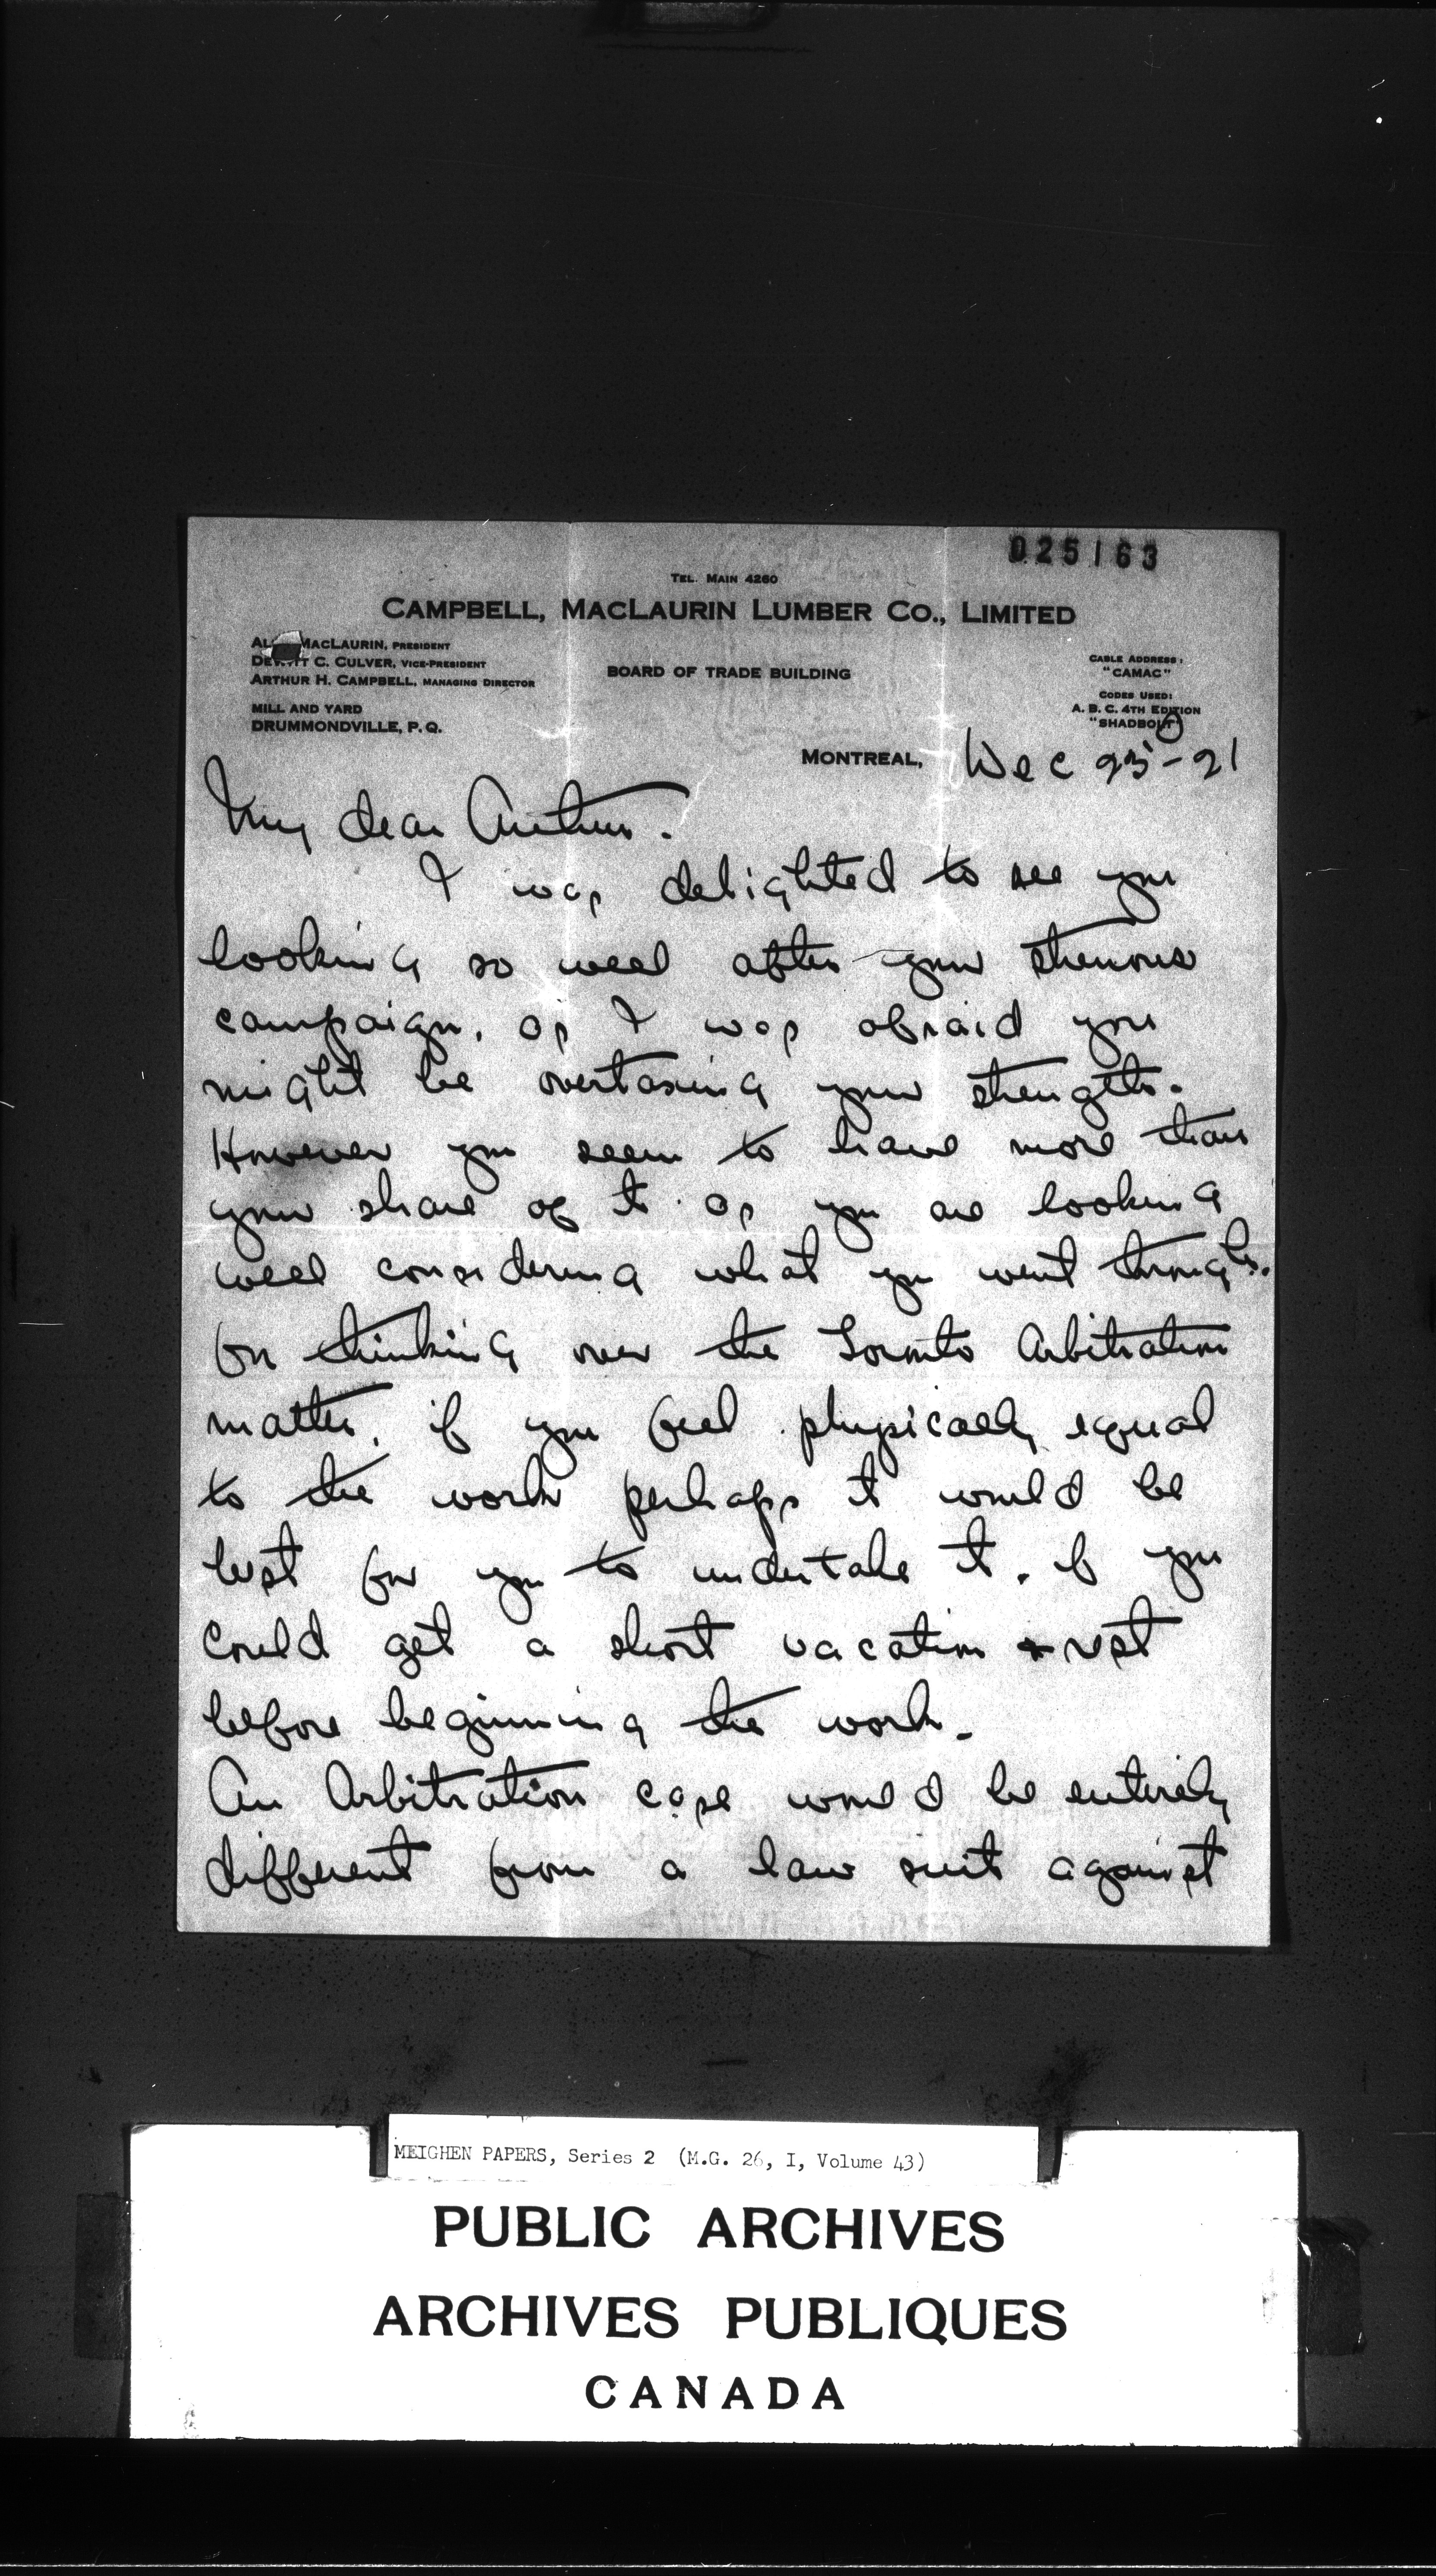 025163
TEL. MAIN 4260
CAMPBELL, MACLAURIN LUMBER CO., LIMITED
MACLAURIN, PRESIDENT
C. CULVER, VICE-PRESIDENT
ARTHUR H. CAMPBELL, MANAGING DIRECTOR
MILL AND YARD
DRUMMONDVILLE, P. Q.
BOARD OF TRADE BUILDING
CABLE ADDRESS:
"CAMAC"
CODES USED:
A. B. C. 4TH EDITION
"SHADBOLT"
MONTREAL, Dec 23-21
My dear Arthur.
I was delighted to see you
looking so well after your strenuous
campaign, as I was afraid you
might be overtaxing your strength.
However you seem to have more than
your share of it as you are looking
well considering what you went through.
On thinking over the Toronto Arbitration
matter, if you feel physically equal
to the work perhaps it would be
best for you to undertake it, if you
could get a short vacation & rest
before beginning the work.
An Arbitration case would be entirely
different from a law suit against
MEIGHEN PAPERS, Series 2 (M.G. 26, I, Volume 43)
PUBLIC ARCHIVES
ARCHIVES PUBLIQUES
CANADA